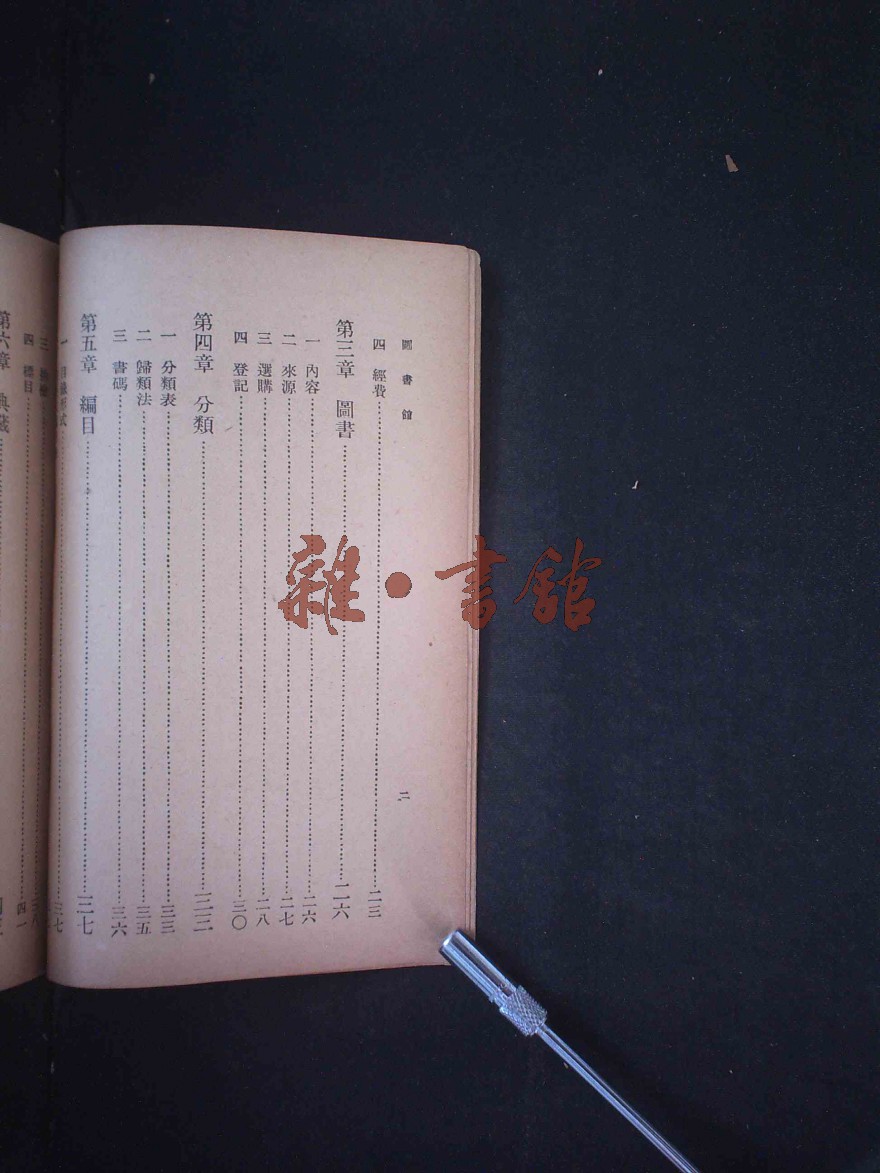 圖書館
二
四 經費……二三
第三章 圖書……二六
一 內容……二六
二 來源……二七
三 選購……二八
四 登記……三〇
第四章 分類……三三
一 分類表……三三
二 歸類法……三五
三 書碼……三六
第五章 編目……三七
一 目錄形式……三七
三
四 標目……四一
第六章 典藏
雜·書館